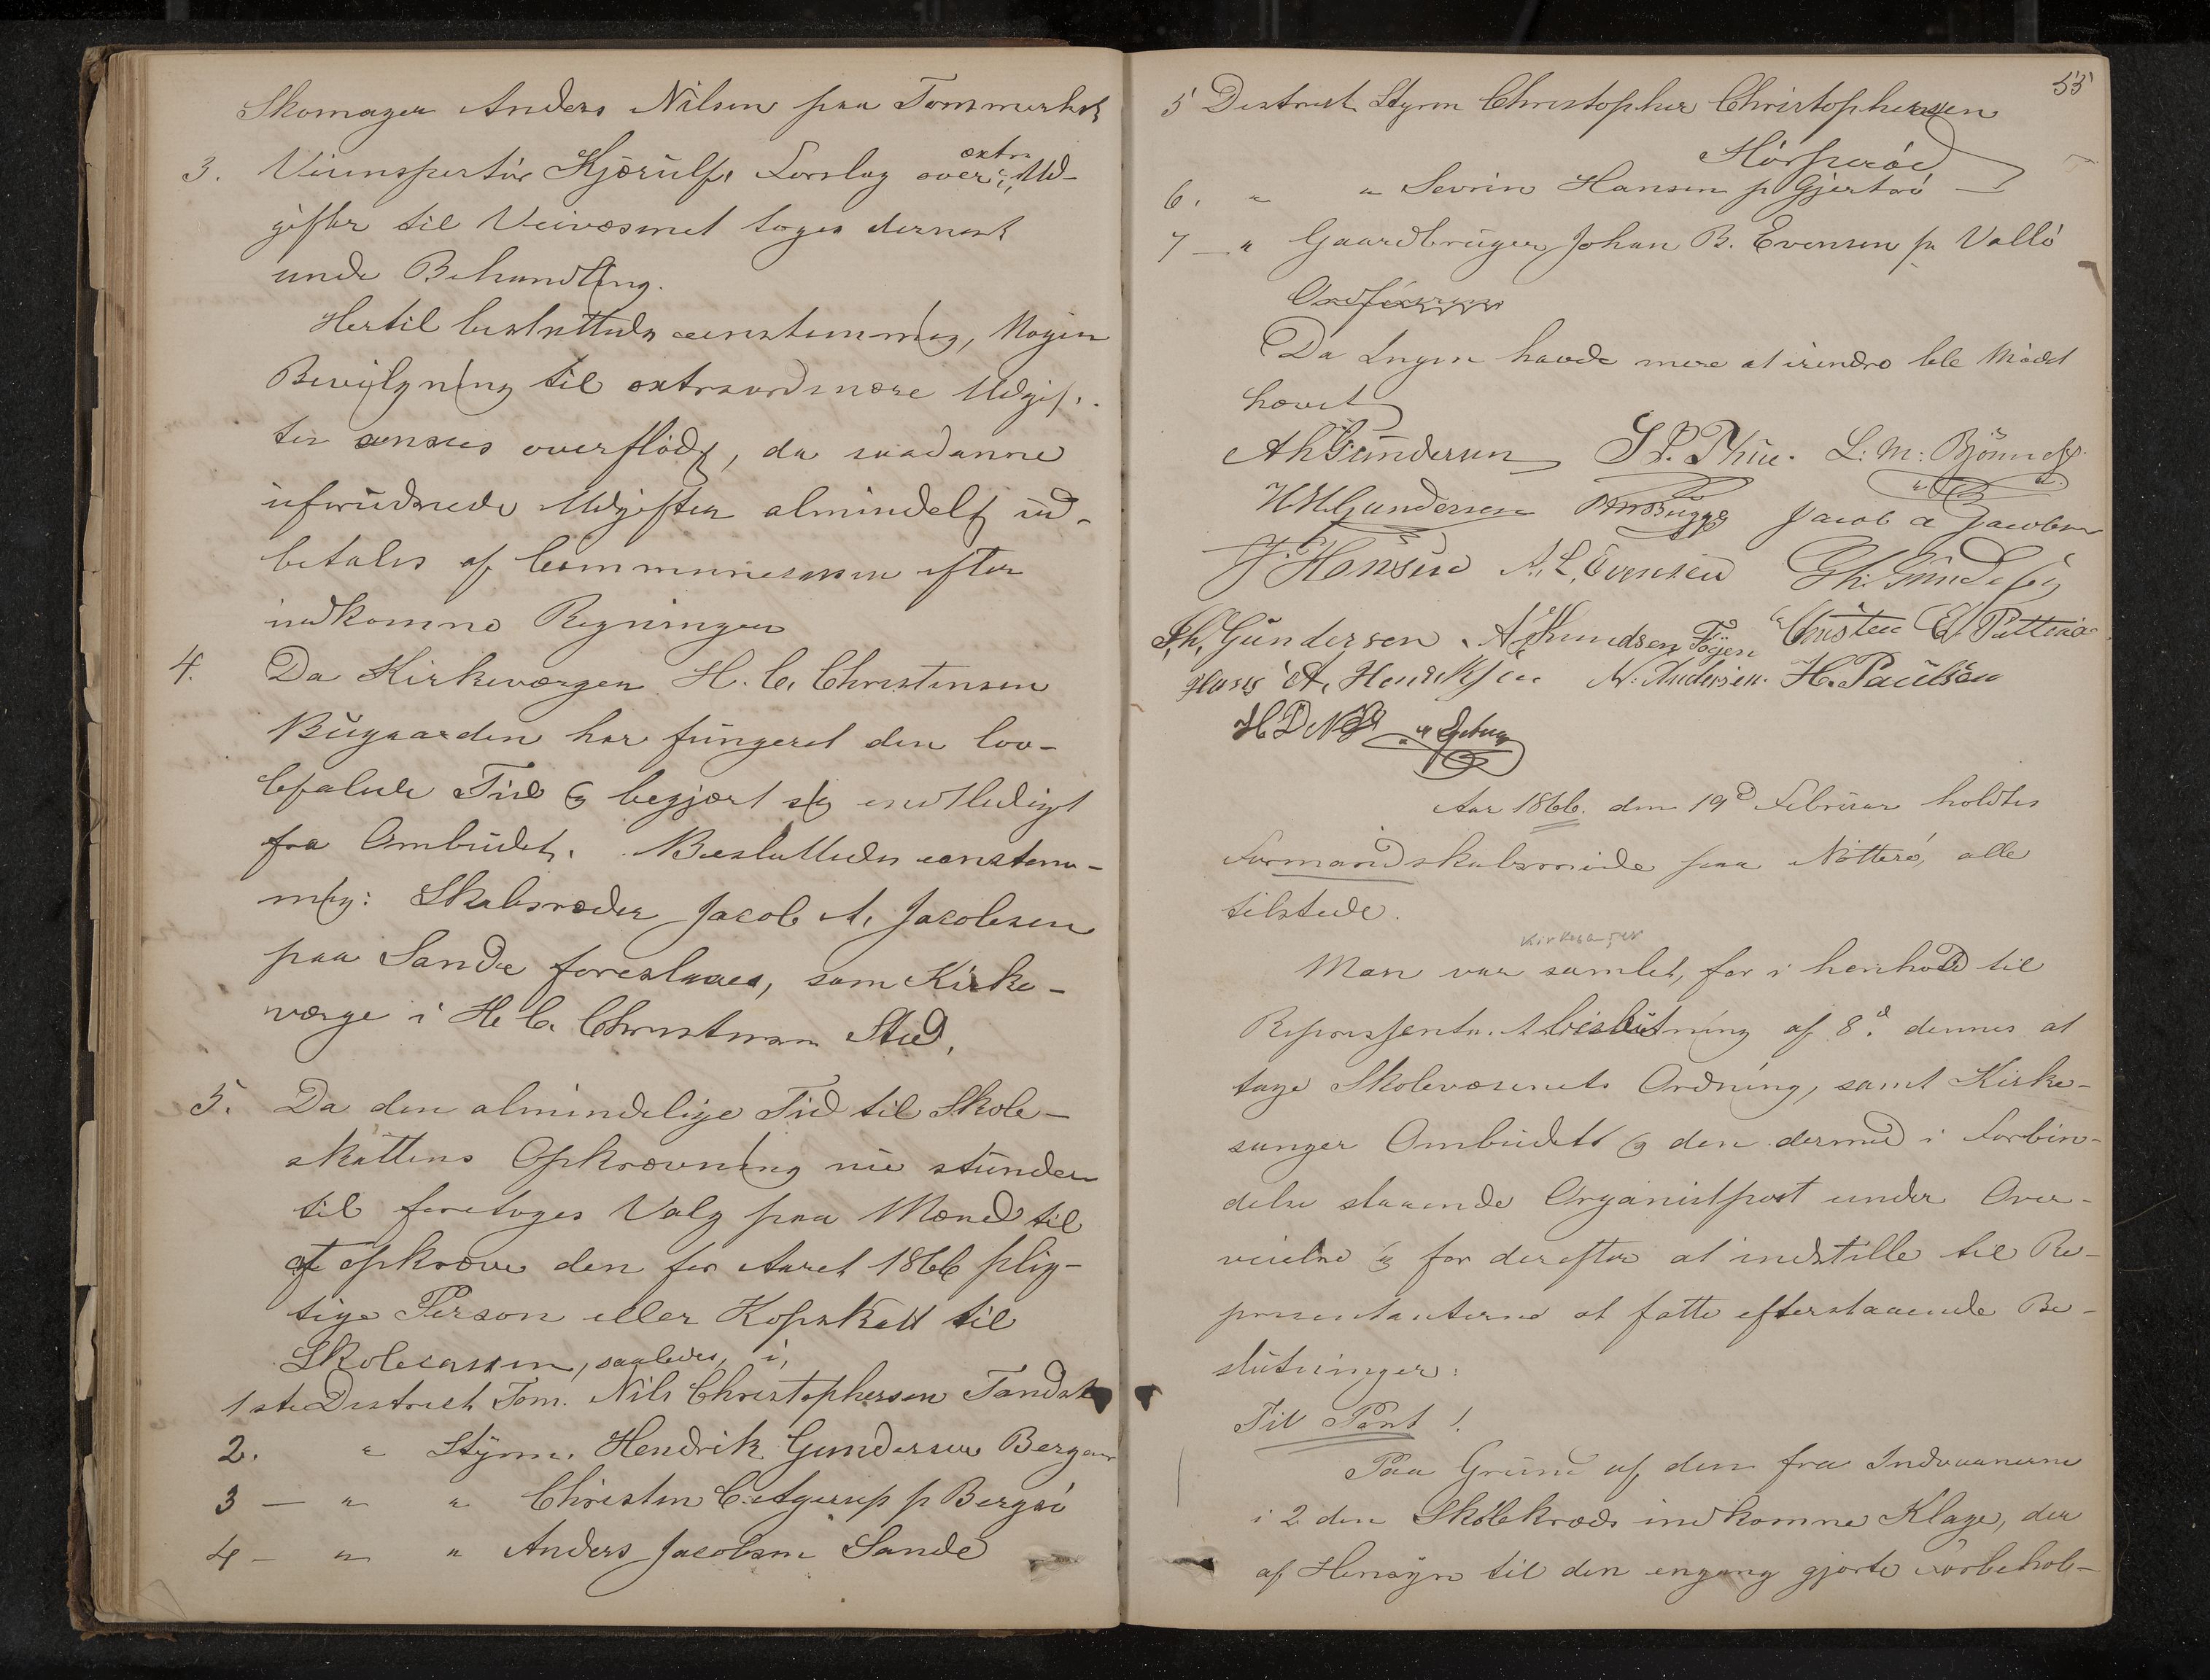 Skomager Anders Nilsen paa Tommerholt
3. Veiinspectør Kjærulfs Forslag over extra Ud-
gifter til Veivæsenet toges dernest
under Behandling.
Hertil besluttedes eenstemmig, Nogen
Bevilgning til extraordinære Udgif-
ter ansees overflødig, da saadanne
uforudseede Udgifter almindelig ud-
betales af Communecassen efter
indkomne Regninger
4. Da Kirkeværgen H. C. Christensen
Bugaarden har fungeret den lov-
befalede Tid og begjært sig entlediget
fra Ombudet. Besluttedes eenstem-
mig: Skibsreder Jacob A. Jacobsen
paa Sande foreslaaes, som Kirke-
værge i H. C. Christensens Sted.
5. Da den almindelige Tid til Skole-
skattens Opkrævning nu stunder
til foretoges Valg paa Mænd til
at opkræve den for Aaret 1866 plig-
tige Person eller Kopskatt til
Skolecassen, saaledes, i,
1ste District Tom. Nils Christophersen
2. " Styrm. Hendrik Gundersen Bergan
3 — " " Christen C. Agerup p Bergan
4 — " " Anders Jacobsen Sande
55
5 District Styrm Christopher Christophersen
6. " " Sevrin Hansen p Gjerterø
7 — " Gaardbruger Johan B. Evensen pa Vallø
Da Ingen havde mere at erindre ble Mødet
hævet
A h Gundersen S. P. Thue. L. M. Bjønnes
H H Gundersen Bugge Jacob A Jacobsen
J. Hansen A. L. Evensen
Th. Gundersen A. Amundsen Føyen Christen E. Putten
Hans A. Henriksen N. Andersen. H. Paulsen
Aar 1866. den 19d Februar holdtes
Formandskabsmøde paa Nøtterø, alle
tilstede.
Kirkesanger
Man var samlet, for i henhold til
Repræsentant beslutning af 8d. dennes at
tage Skolevæsenets Ordning, samt Kirke-
sanger Ombudets og den dermed i Forbin-
delse staaende Organistpost under Over-
veielse og for derefter at indstille til Re-
præsentanterne at fatte efterstaaende Be-
slutninger:
Til Post 1.
Paa Grund af den fra Indvaanerne
i 2den Skolekreds indkomne Klage, der
af Hensyn til den engang gjorte Forbehol-